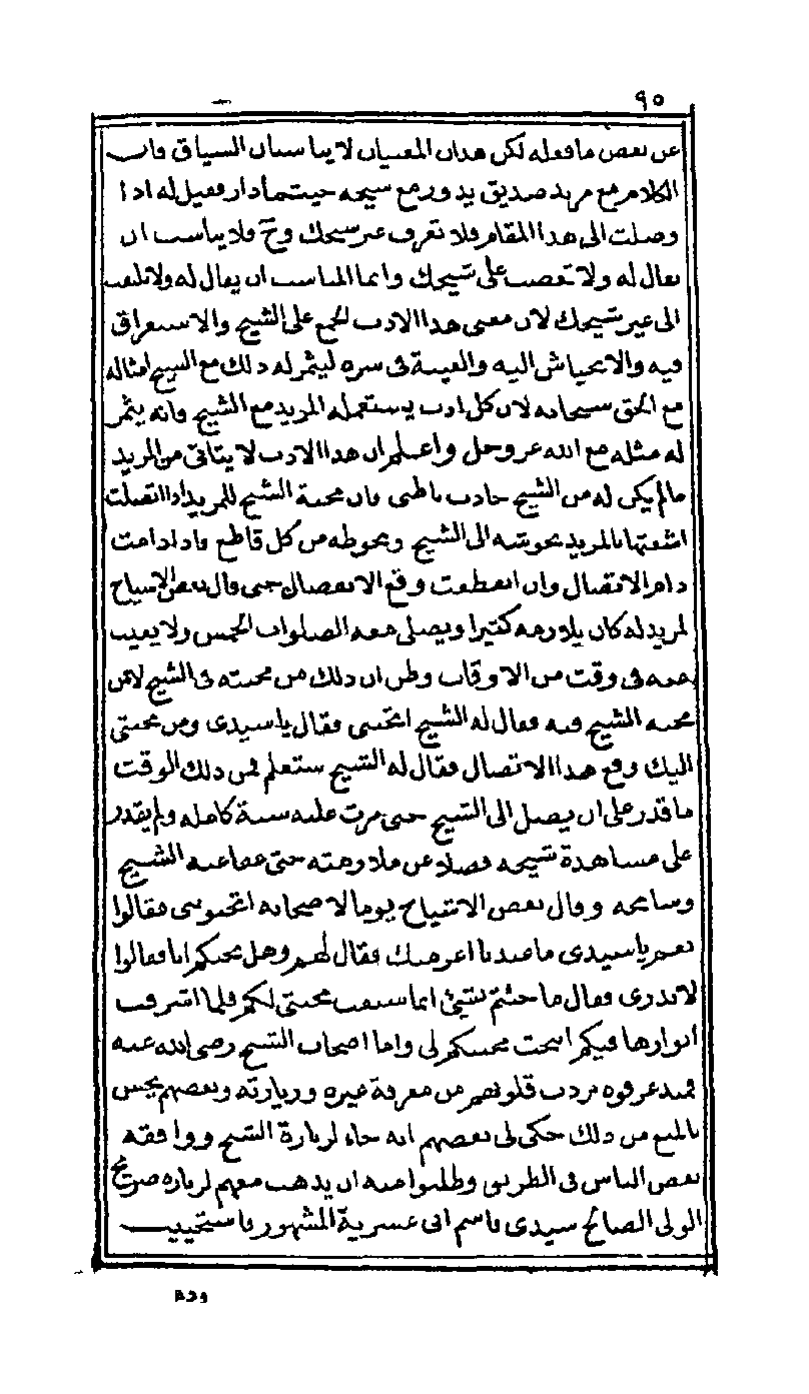 ٩٥
عن بعض ما فعوله لكن هذان المعنيان لا يناسبان السياق فان
الكلام مع مريد صديق يدور مع شيخه حيثما دار فقيل له اذا
وصلت الى هذا المقام فلا تعرف غير شيخك وح فلا يناسب ان
يقال له ولا تغضب على شيخك وانما المناسب ان يقال له ولا تلتفت
الى غير شيخك لان معنى هذا الادب الجمع على الشيخ والاستغراق
فيه والانحياش اليه والغيبة فى سره ليثمر له ذلك مع الشيخ امثاله
مع الحق سبحانه لان كل ادب يستعمله المريد مع الشيخ فانه يثمر
له مثله مع الله عز وجل واعلم ان هذا الادب لا يتاتى من المريد
ما لم يكن له من الشيخ جاذب باطنى فان محبة الشيخ للمريد اذا اتصلت
اشعتها بالمريد تحوشه الى الشيخ وتحوطه من كل قاطع فاذا دامت
دام الاتصال وان انقطعت وقع الانفصال حتى قال بعض الاشياخ
لمريد له كان يلازمه كثيرا ويصلى معه الصلوات الخمس ولا يغيب
عنه فى وقت من الاوقات وظن ان ذلك من محبته فى الشيخ لا من
محبة الشيخ فيه فقال له الشيخ اتحبنى فقال يا سيدى ومن محبتى
اليك وقع هذا الاتصال فقال له الشيخ ستعلم فمن ذلك الوقت
ما قدر على ان يصل الى الشيخ حتى مرت عليه سنة كاملة ولم يقدر
على مشاهدة شيخه فضلا عن ملازمته حتى عفا عنه الشيخ
وسامحه وقال بعض الاشياخ يوما لاصحابه اتحبونى فقالوا
نعم يا سيدى ما عندنا اعز منك فقال لهم وهل نحبكم انا فقالوا
لا ندرى فقال ما جئتم بشئ انما سبقت محبتى لكم فلما اشرقت
انوارها فيكم انتجت محبتكم لى واما اصحاب الشيخ رضى الله عنه
فمنذ عرفوه بردت قلوبهم من معرفة غيره وزيارته وبعضهم يحس
بالمنع من ذلك حكى لى بعضهم انه جاء لزيارة الشيخ ووافقه
بعض الناس فى الطريق وطلبوا منه ان يذهب معهم لزيارة ضريح
الولى الصالح سيدى قاسم ابى عسرية المشهور فاستحييت